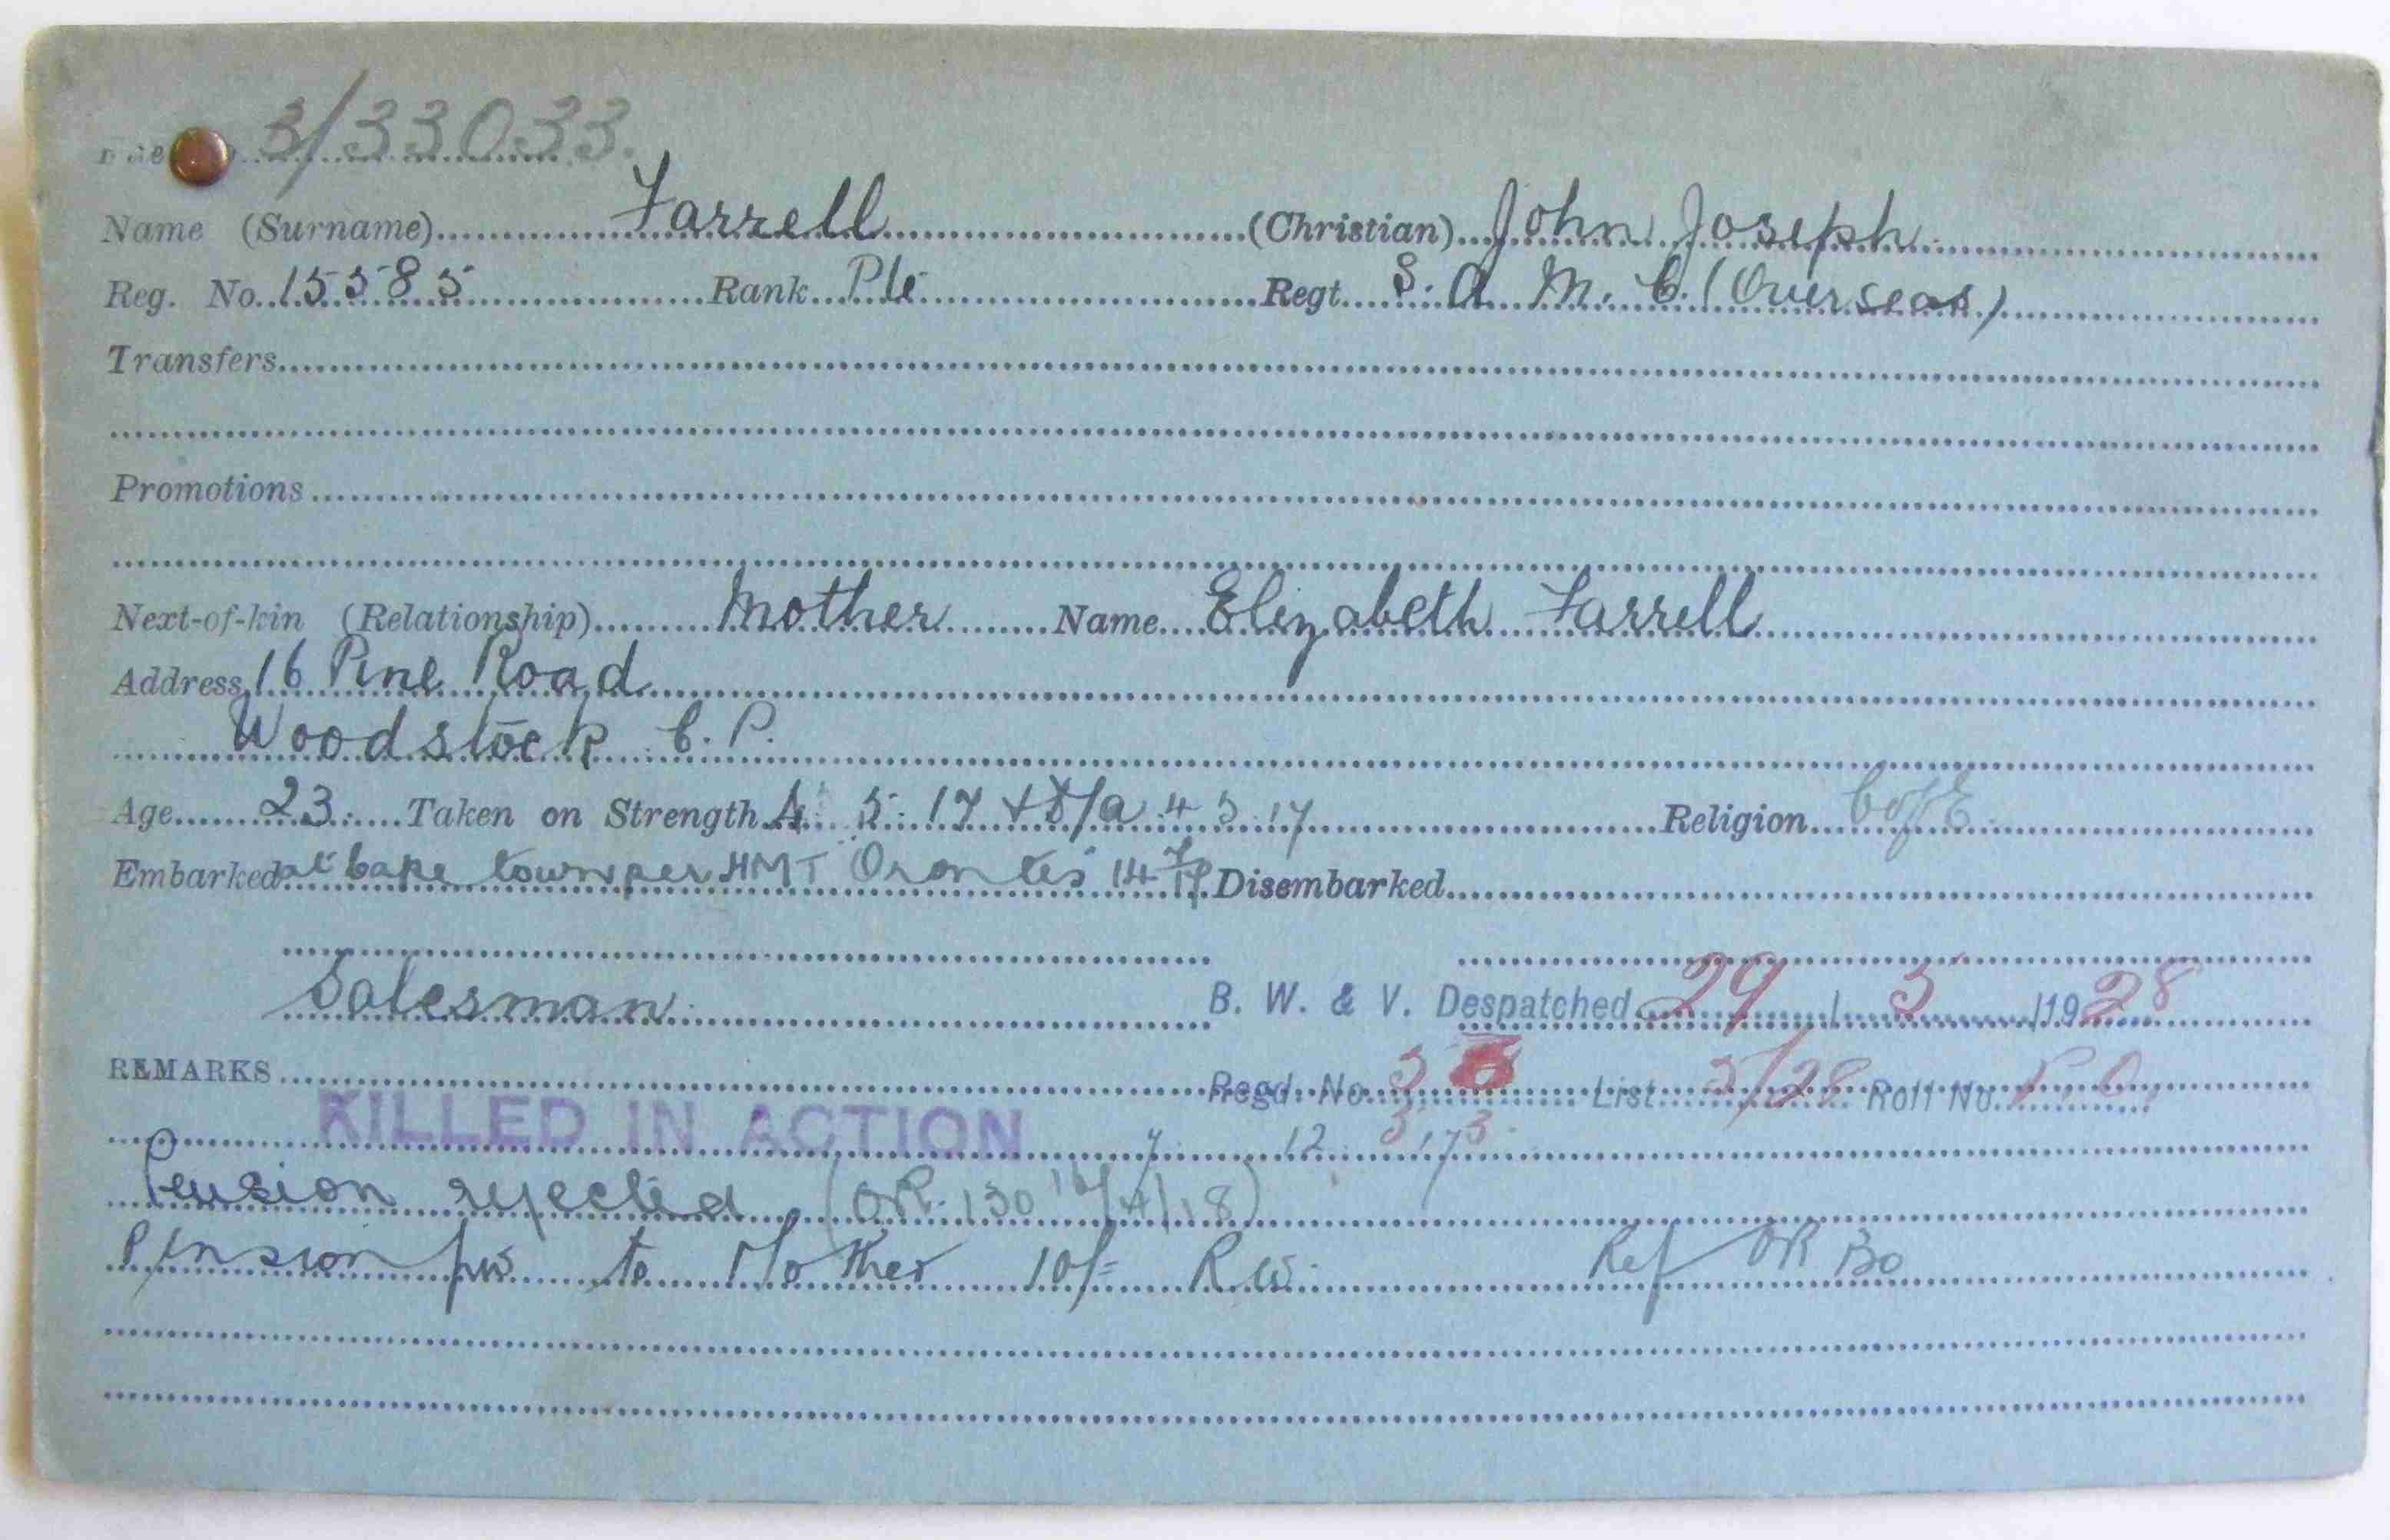 3/33033.
Name (Surname) Farrell (Christian) John Joseph
Reg. No. 15585 Rank Pte Regt. S. A. M. C. (Overseas)
Transfers
Promotions
Next-of-kin (Relationship) Mother Name Elizabeth Farrell
Address 16 Pine Road
Woodstock C. P.
Age 23 Taken on Strength 4. 5. 17 4 5 17 Religion C of E
Embarked at Cape Town per HMT Orontes 14 Disembarked
Salesman B. W. & V. Despatched 29 / 5 /1928
REMARKS Regd. No. 5 List 5/28 Roll No. P. O.
KILLED IN ACTION 7 12 17
Pension rejected (OR. 130 16/4/18)
Pension to Mother 10/= Ref OR 130